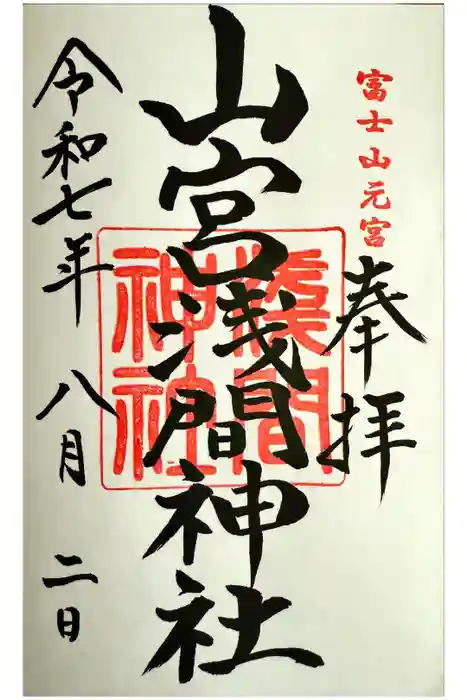 富士山元宮
奉拝
山宮浅間神社
浅間神社
令和七年 八月 二日